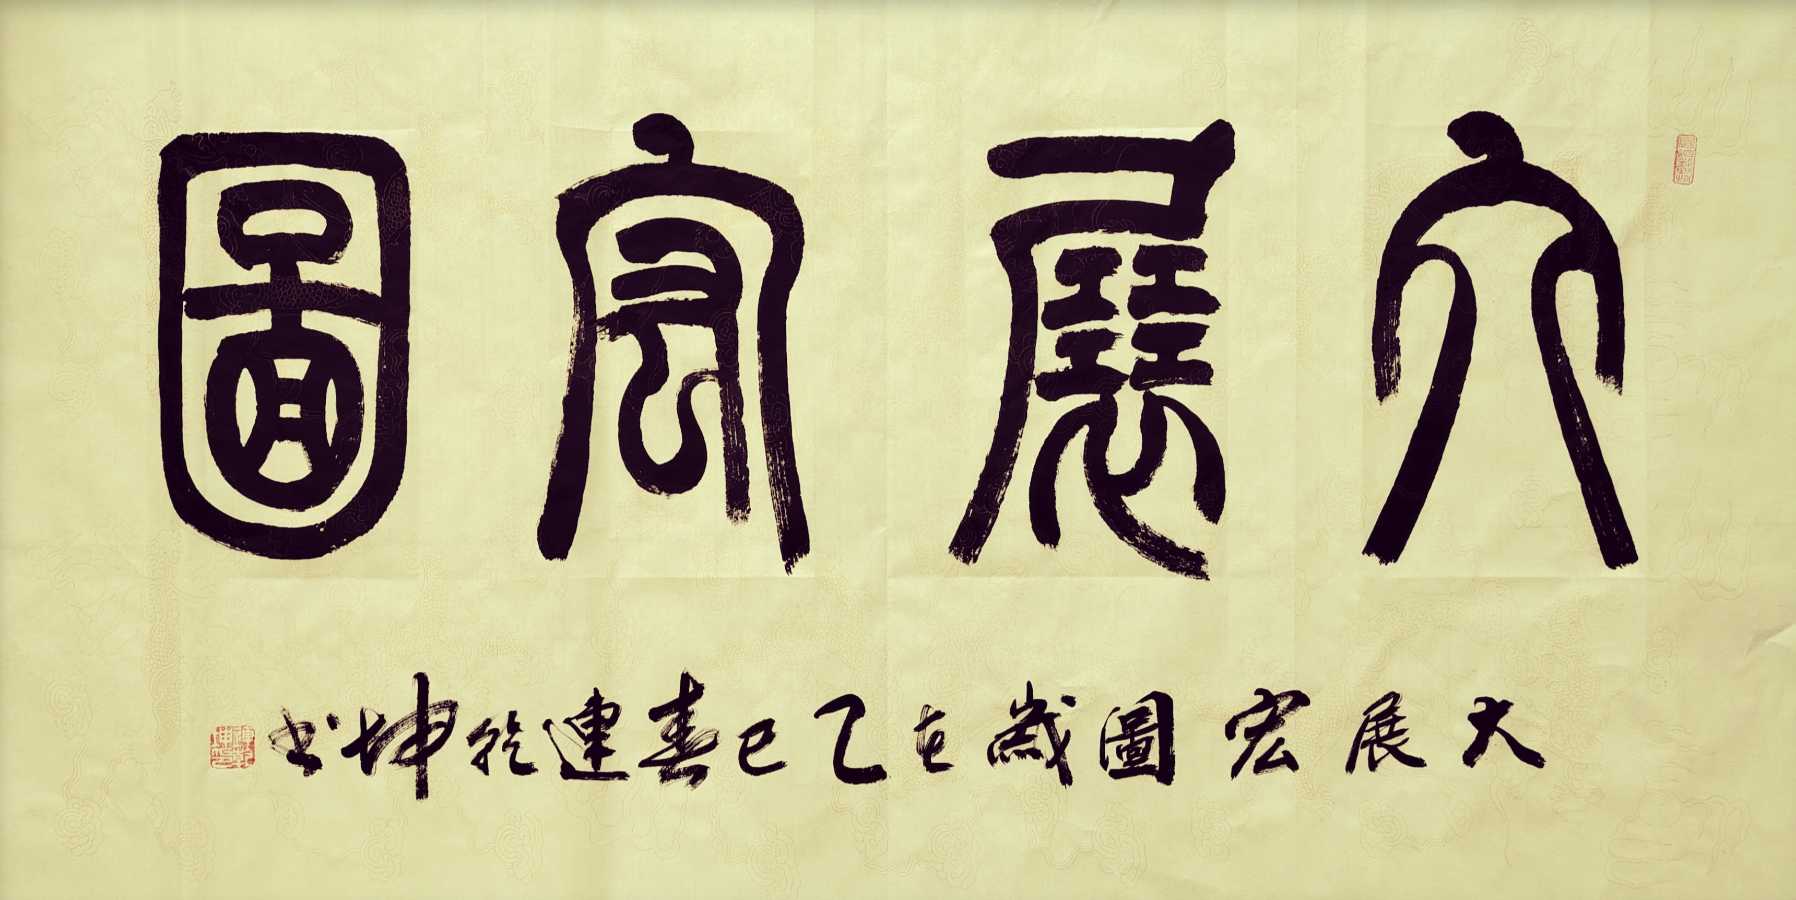 大展宏圖
大展宏圖歲在乙巳春連乾坤書